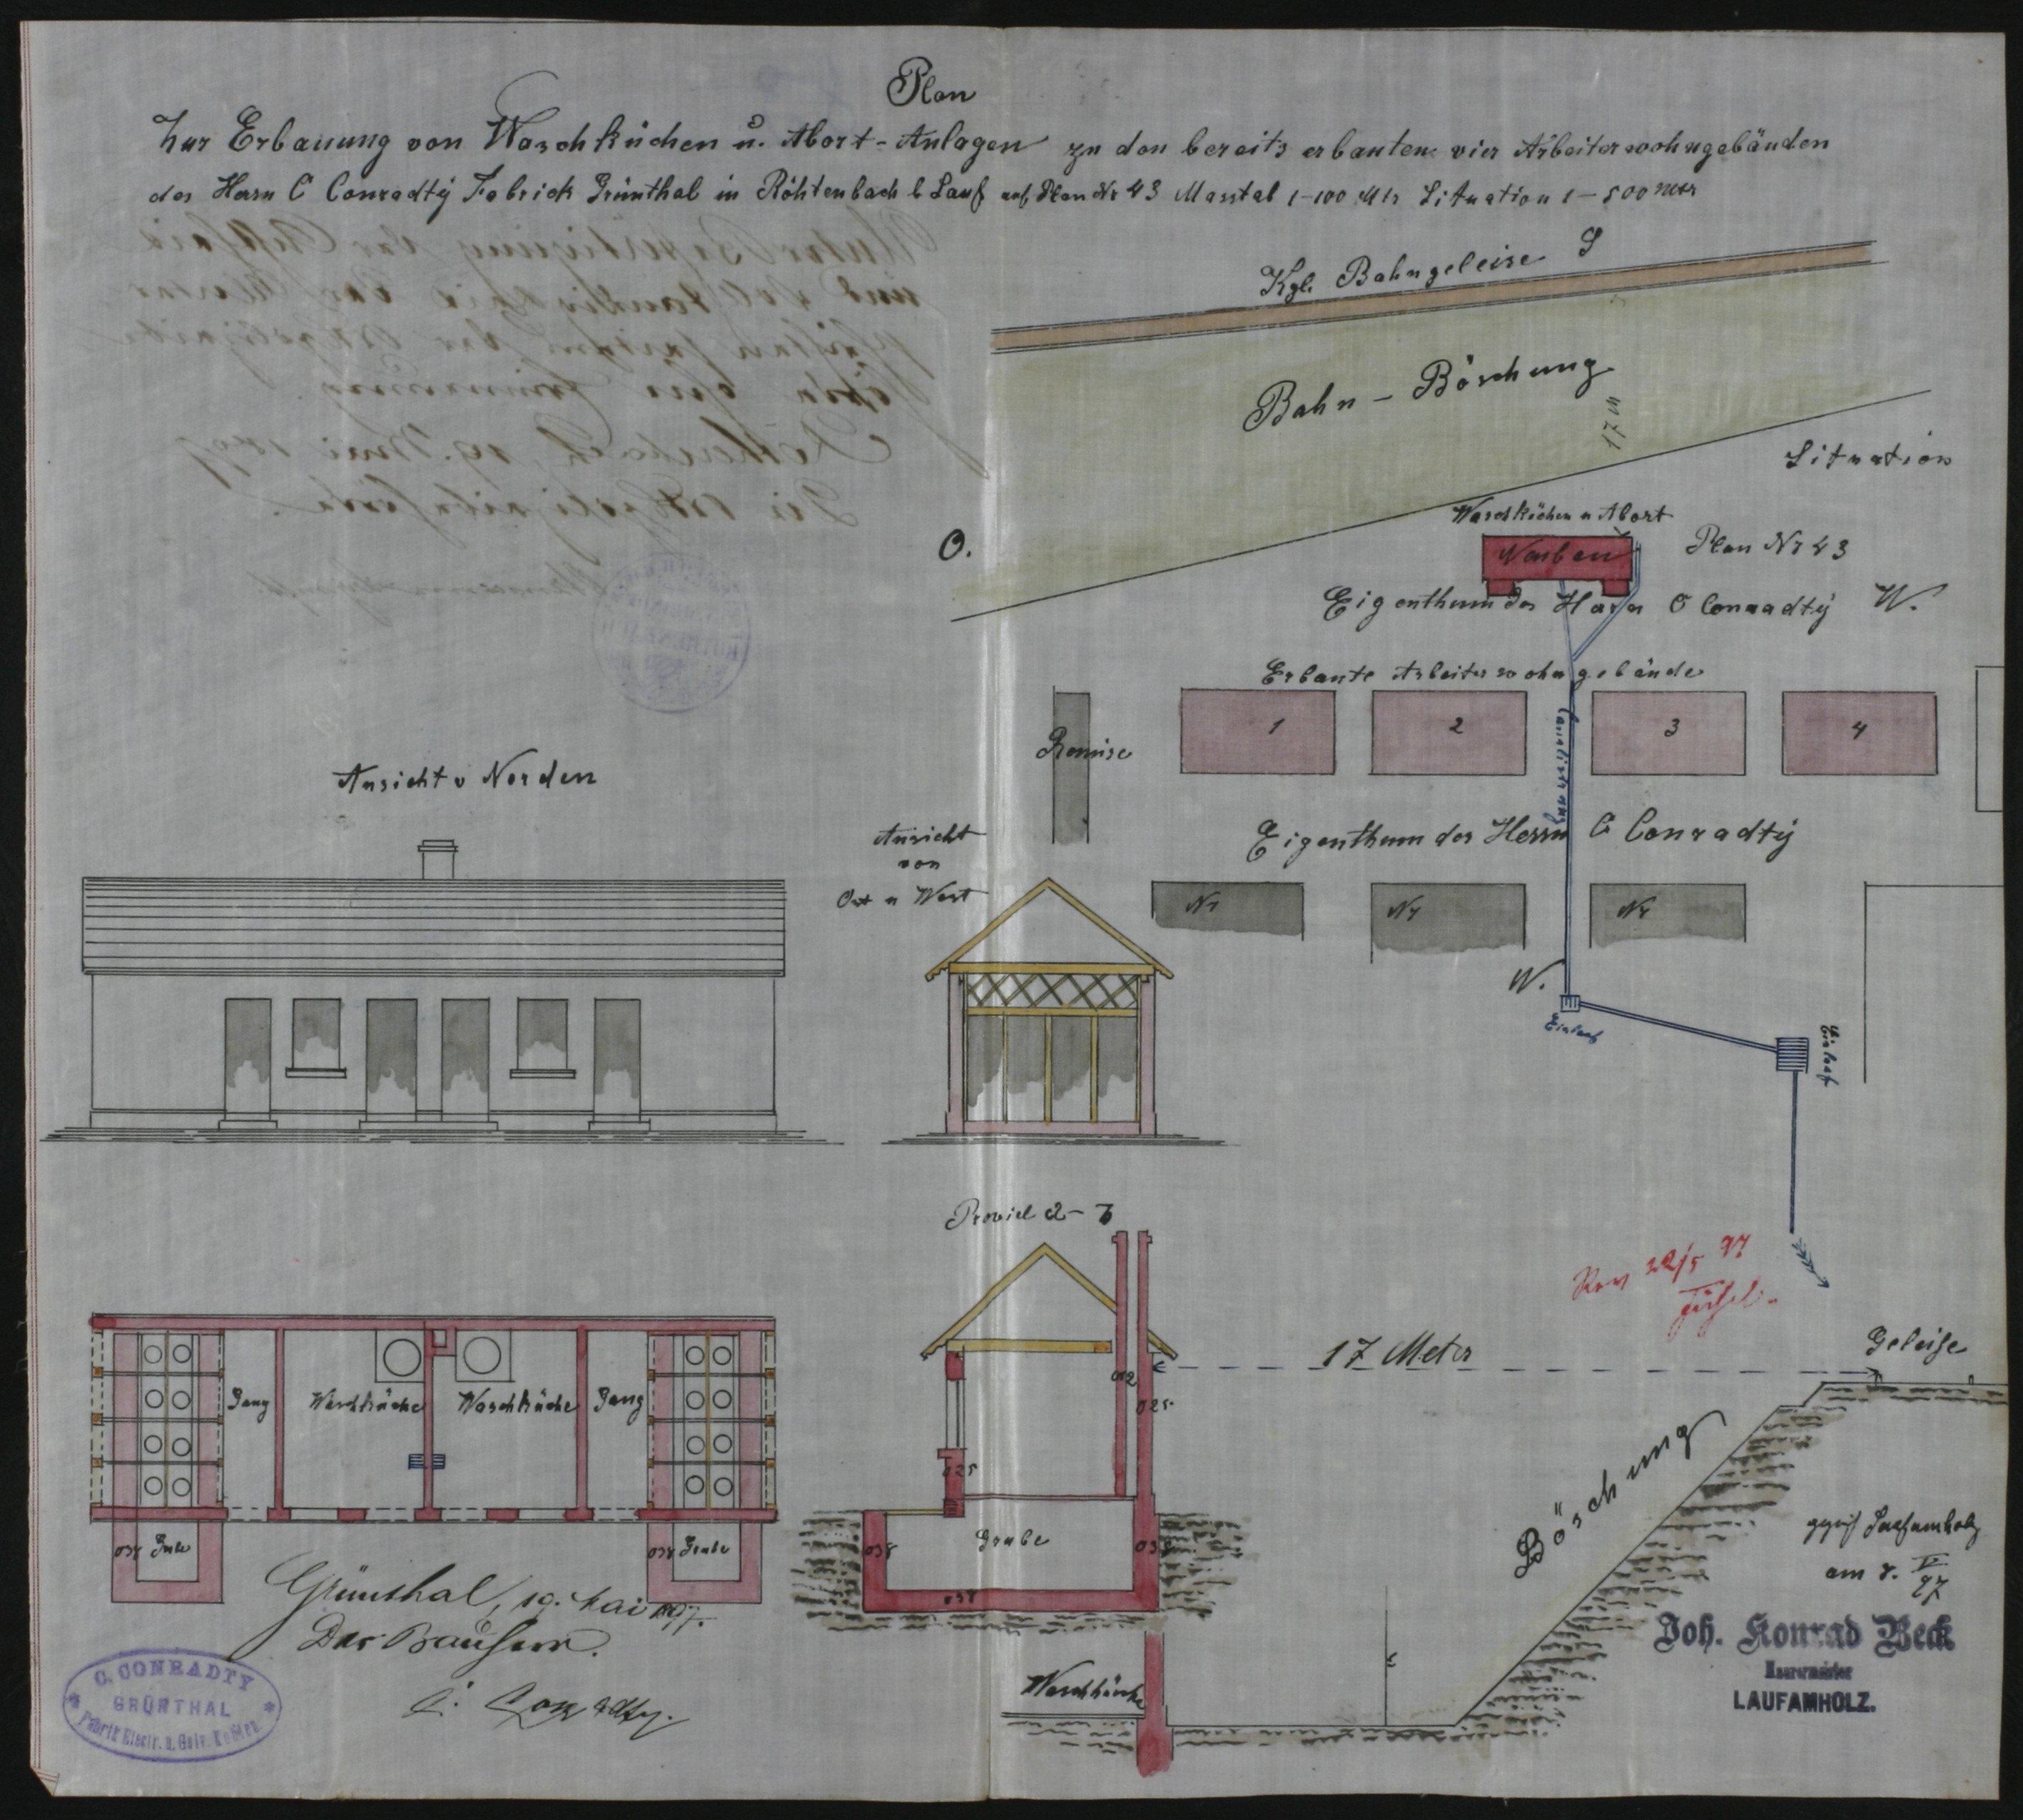 Plan
Zur Erbauung von Waschküchen u. Abort-Anlagen zu den bereits erbauten vier Arbeiterwohngebäuden
des Herrn C Conradtÿ Fabrick Grünthal in Röhtenbach b Lauf auf Plan Nr 43 Masstab 1-100 Mtr Situation 1-500 Mtr
Kgl. Bahngeleise S
Bahn-Böschung
17 m
Situation
O.
Waschküchen u Abort
Neubau
Plan Nr 43
Eigenthum des Herrn C Conradtÿ W.
Erbaute Arbeiterwohngebäude
Remise
1
2
3
4
Canalisirung
Eigenthum des Herrn C Conradtÿ
Nr
Nr
Nr
W.
Einlauf
Einlauf
Ansicht v Norden
Ansicht
von
Ost u West
Proviel a-b
Rev 22/5 97
17 Meter
Geleise
012
025
025
Grube
038
038
038
Böschung
Waschküche
Gang
Waschküche
Waschküche
Gang
038 Grube
038 Grube
Grünthal, 19. Mai 1897.
Der Bauherr.
C. Conradty.
C. CONRADTY
GRÜNTHAL
Fabrik Electr. u. Galv. Kohlen
am 8. V 97
Joh. Konrad Beck
Maurermeister
LAUFAMHOLZ.